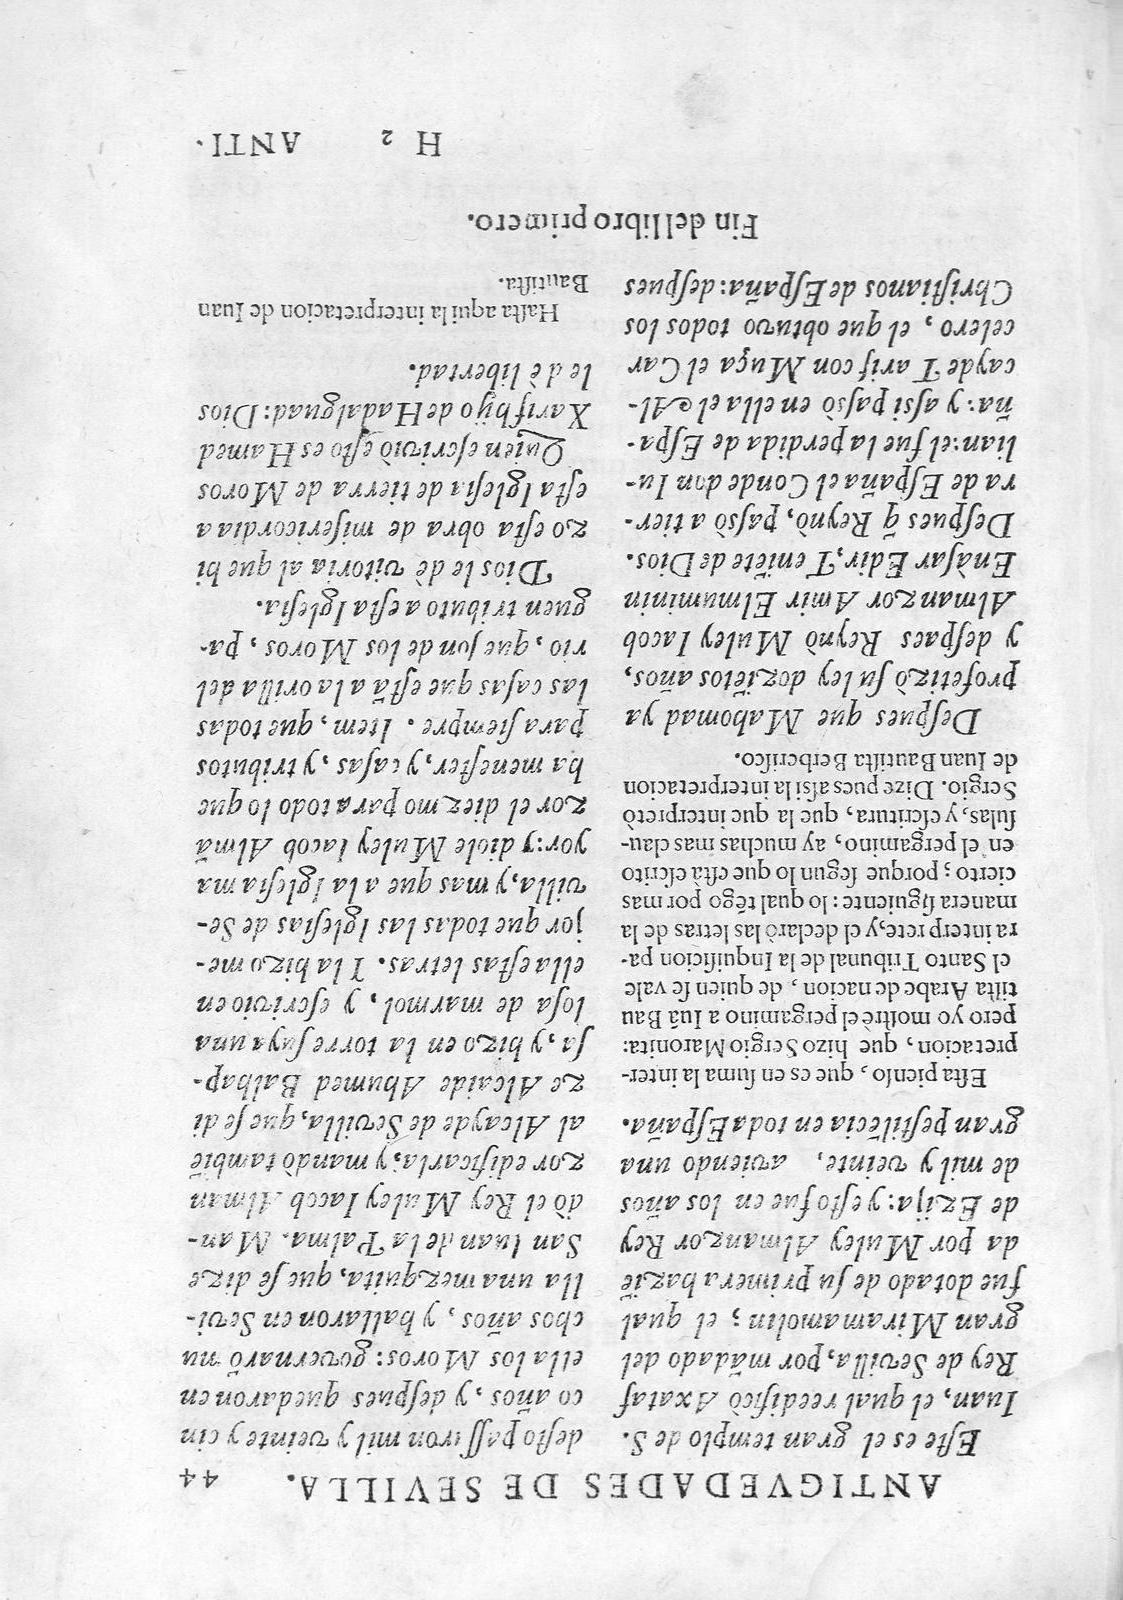 ANTIGVEDADES DE SEVILLA. 44
Este es el gran templo de S.
Iuan, el qual reedificò Axataf
Rey de Sevilla, por mãdado del
gran Miramamolin; el qual
fue dotado de su primera haziẽ
da por Muley Almanzor Rey
de Ezija: y esto fue en los años
de mil y veinte, aviendo una
gran pestilẽcia en toda España.
Esta pienso, que es en suma la inter-
pretacion, que hizo Sergio Maronita:
pero yo mostrè el pergamino a Iuã Bau
tista Arabe de nacion, de quien se vale
el Santo Tribunal de la Inquisicion pa-
ra interprete, y el declarò las letras de la
manera siguiente: lo qual tẽgo por mas
cierto; porque segun lo que està escrito
en el pergamino, ay muchas mas clau-
sulas, y escritura, que la que interpretò
Sergio. Dize pues assi la interpretacion
de Iuan Bautista Berberisco.
Despues que Mahomad ya
profetizò su ley dozietos años,
y despaes Reynò Muley Iacob
Almanzor Amir Elmuminin
Enàsar Edir, Teniẽte de Dios.
Despues q̃ Reynò, passò a tier-
ra de España el Conde don Iu-
lian: el fue la perdida de Espa-
ña: y assi passò en ella el Al-
cayde Tarif con Muça el Car
celero, el que obtuvo todos los
Christianos de España: despues
desto passaron mil y veinte y cin
co años, y despues quedaron en
ella los Moros: governarõ mu
chos años, y hallaron en Sevi-
lla una mezquita, que se dize
San Iuan de la Palma. Man-
dò el Rey Muley Iacob Alman
zor edificarla; y mandò tambiẽ
al Alcayde de Sevilla, que se di
ze Alcaide Abumed Balbap-
sa, y hizo en la torre suya una
losa de marmol, y escrivio en
ella estas letras. Y la hizo me-
jor que todas las Iglesias de Se-
villa, y mas que a la Iglesia ma
yor: y diole Muley Iacob Almã
zor el diezmo para todo lo que
ha menester, y casas, y tributos
para siempre. Item, que todas
las casas que està a la orilla del
rio, que son de los Moros, pa-
guen tributo a esta Iglesia.
Dios le dè vitoria al que hi
zo esta obra de misericordia a
esta Iglesia de tierra de Moros
Quien escriviò esto es Hamed
Xarif hijo de Hadalguad: Dios
le dè libertad.
Hasta aqui la interpretacion de Iuan
Bautista.
Fin del libro primero.
H 2 ANTI.